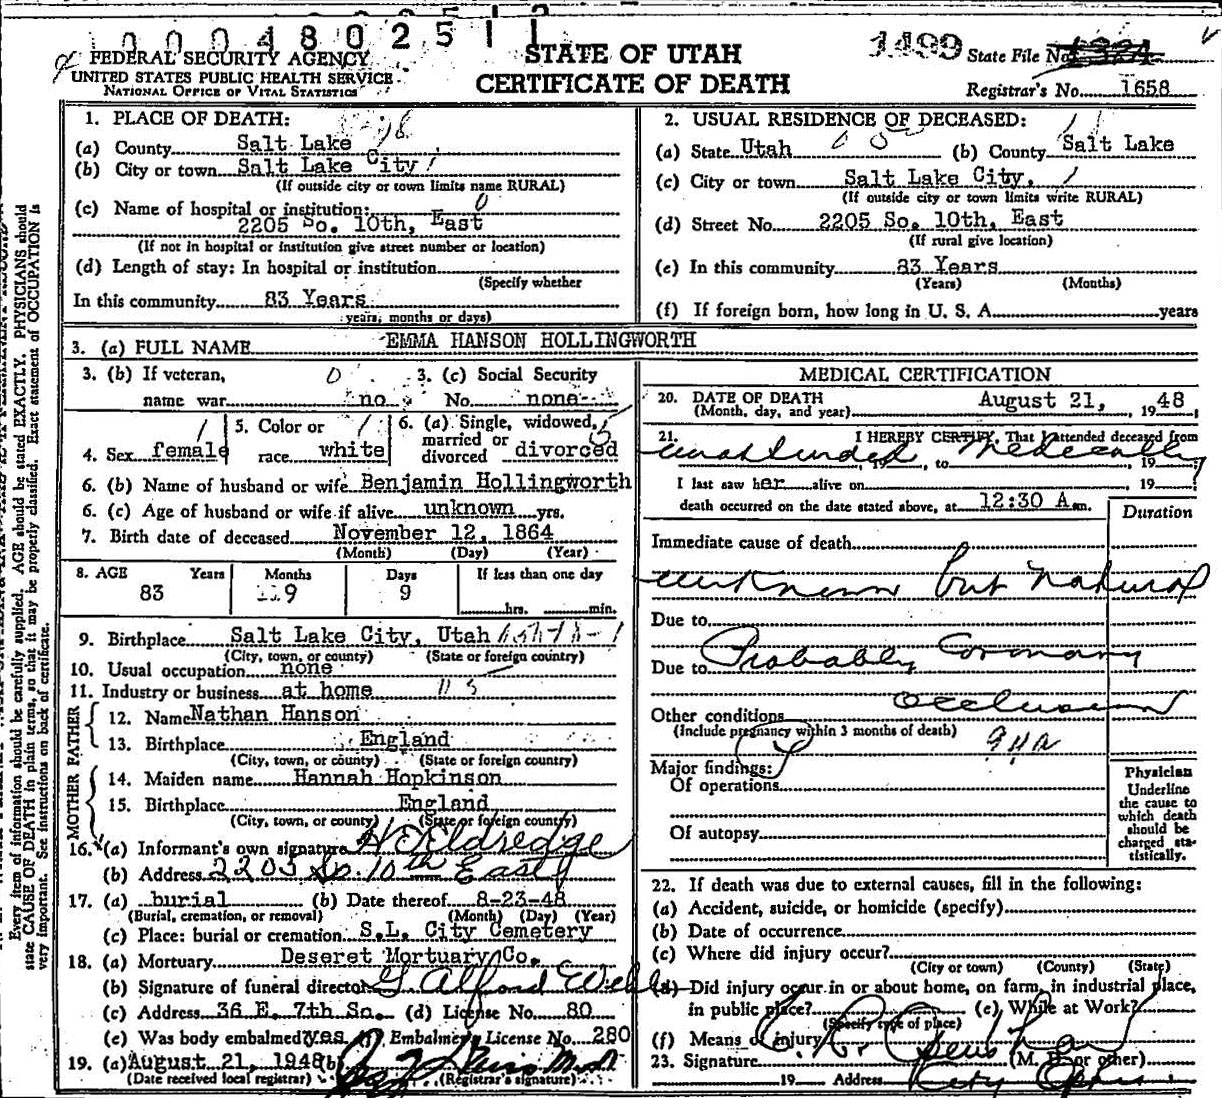 0 0 0 4 8 0 2 5 1 1
FEDERAL SECURITY AGENCY
UNITED STATES PUBLIC HEALTH SERVICE
NATIONAL OFFICE OF VITAL STATISTICS
STATE OF UTAH
CERTIFICATE OF DEATH
1499 State File No.
Registrar's No. 1658
1. PLACE OF DEATH:
(a) County Salt Lake
(b) City or town Salt Lake City
(If outside city or town limits name RURAL)
(c) Name of hospital or institution:
2205 So. 10th, East
(If not in hospital or institution give street number or location)
(d) Length of stay: In hospital or institution
(Specify whether
In this community 83 Years
years, months or days)
2. USUAL RESIDENCE OF DECEASED:
(a) State Utah (b) County Salt Lake
(c) City or town Salt Lake City,
(If outside city or town limits write RURAL)
(d) Street No. 2205 So. 10th, East
(If rural give location)
(e) In this community 83 Years
(Years) (Months)
(f) If foreign born, how long in U. S. A. years
3. (a) FULL NAME EMMA HANSON HOLLINGWORTH
3. (b) If veteran, 0
name war no
3. (c) Social Security
No. none
4. Sex female
5. Color or
race white
6. (a) Single, widowed,
married or
divorced divorced
6. (b) Name of husband or wife Benjamin Hollingworth
6. (c) Age of husband or wife if alive unknown yrs.
7. Birth date of deceased November 12, 1864
(Month) (Day) (Year)
8. AGE Years Months Days If less than one day
83 9 9
hrs. min.
9. Birthplace Salt Lake City, Utah
(City, town, or county) (State or foreign country)
10. Usual occupation none
11. Industry or business at home
FATHER
12. Name Nathan Hanson
13. Birthplace England
(City, town, or county) (State or foreign country)
MOTHER
14. Maiden name Hannah Hopkinson
15. Birthplace England
(City, town, or county) (State or foreign country)
16. (a) Informant's own signature H E Eldredge
(b) Address 2205 So. 10th East
17. (a) burial (b) Date thereof 8-23-48
(Burial, cremation, or removal) (Month) (Day) (Year)
(c) Place: burial or cremation S.L. City Cemetery
18. (a) Mortuary Deseret Mortuary Co.
(b) Signature of funeral director G Alford Wells
(c) Address 36 E. 7th So. (d) License No. 80
(e) Was body embalmed yes (f) Embalmers License No. 280
19. (a) August 21, 1948 (b)
(Date received local registrar) (Registrar's signature)
MEDICAL CERTIFICATION
20. DATE OF DEATH
(Month, day, and year) August 21, , 19 48
21. I HEREBY CERTIFY, That I attended deceased from
unattended , 19 , to medically , 19
I last saw her alive on , 19
death occurred on the date stated above, at 12:30 A m.
Duration
Immediate cause of death
unknown but natural
Due to
Due to Probably Coronary
occlusion
Other conditions
(Include pregnancy within 3 months of death)
Major findings:
Of operations
Of autopsy
Physician
Underline
the cause to
which death
should be
charged sta-
tistically.
22. If death was due to external causes, fill in the following:
(a) Accident, suicide, or homicide (specify)
(b) Date of occurrence
(c) Where did injury occur?
(City or town) (County) (State)
(d) Did injury occur in or about home, on farm, in industrial place,
in public place? (e) While at Work?
(Specify type of place)
(f) Means of injury
23. Signature (M. D. or other)
19 Address City
Every item of information should be carefully supplied. AGE should be stated EXACTLY. PHYSICIANS should
state CAUSE OF DEATH in plain terms, so that it may be properly classified. Exact statement of OCCUPATION is
very important. See instructions on back of certificate.